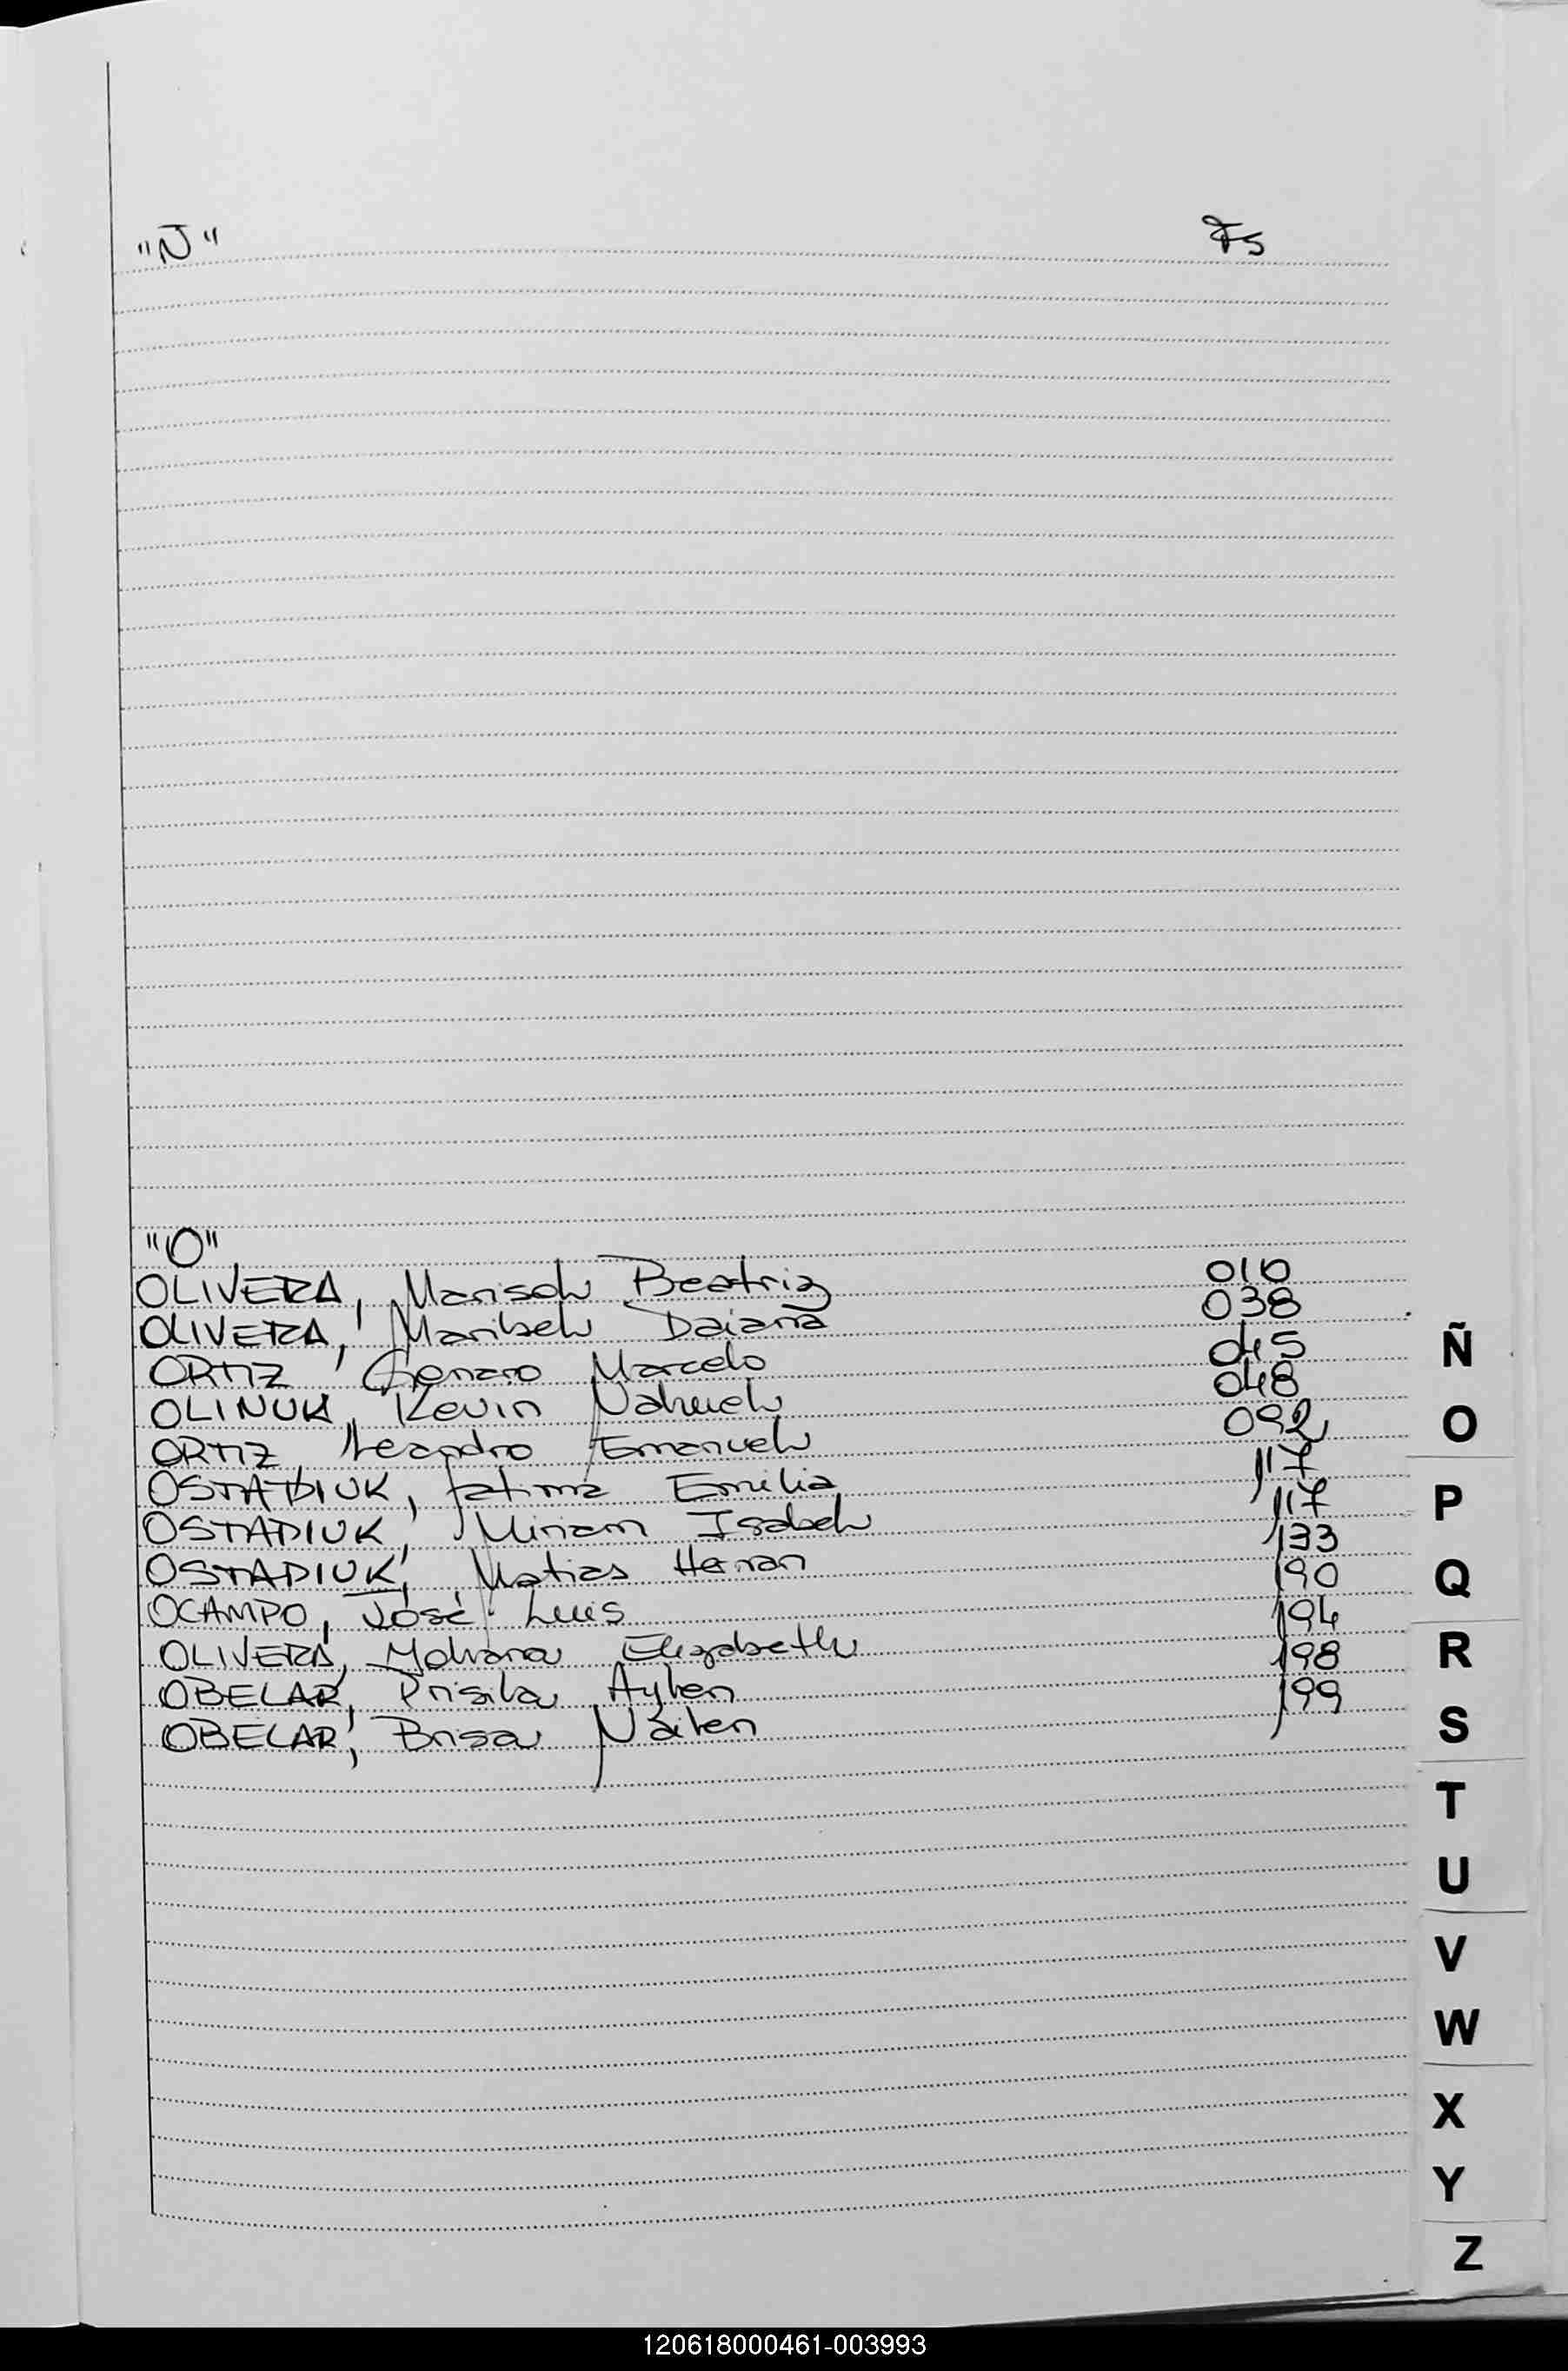 "N" Fs
"O"
OLIVERA, Marisol Beatriz 010
OLIVERA, Maribel Daiana 038
ORTIZ, Genaro Marcelo 045
OLINUK, Kevin Nahuel 048
ORTIZ, Leandro Emanuel 092
OSTADIUK, Fatima Emilia 117
OSTADIUK, Miriam Isabel 117
OSTADIUK, Matias Hernan 133
OCAMPO, José Luis 190
OLIVERA, Yohana Elizabeth 194
OBELAR, Prisila Aylen 198
OBELAR, Brisa Nailen 199
Ñ
O
P
Q
R
S
T
U
V
W
X
Y
Z
120618000461-003993